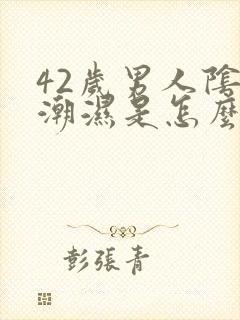 42歲男人陰
潮濕是怎麼
彭張青